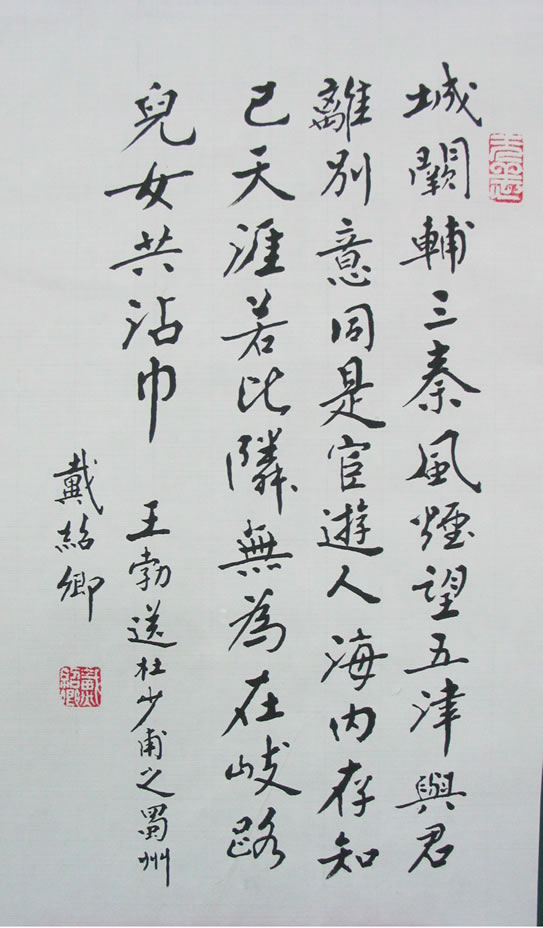 城闕輔三秦風煙望五津與君
離別意同是宦遊人海内存知
己天涯若比隣無為在岐路
兒女共沾巾
王勃送杜少甫之蜀州
戴紹卿
戴紹卿